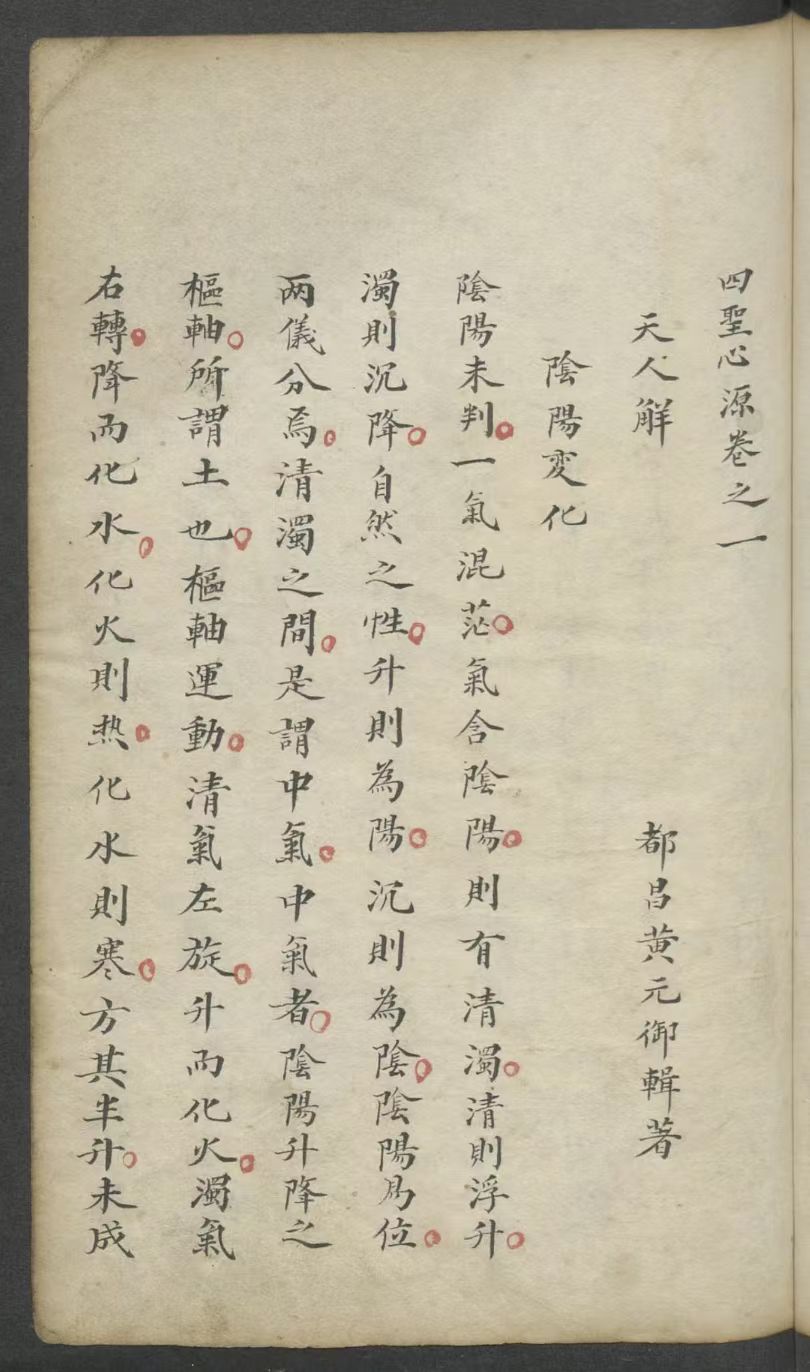 四聖心源卷之一
天人解　都昌黄元御輯著
陰陽変化
陰陽未判。一氣混茫。氣含陰陽。則有清濁。清則浮升。
濁則沉降。自然之性。升則為陽。沉則為陰。陰陽易位。
两儀分焉。清濁之間。是謂中氣。中氣者。陰陽升降之
樞軸。所謂土也。樞軸運動。清氣左旋。升而化火。濁氣
右轉。降而化水。化火則热。化水則寒。方其半升。未成